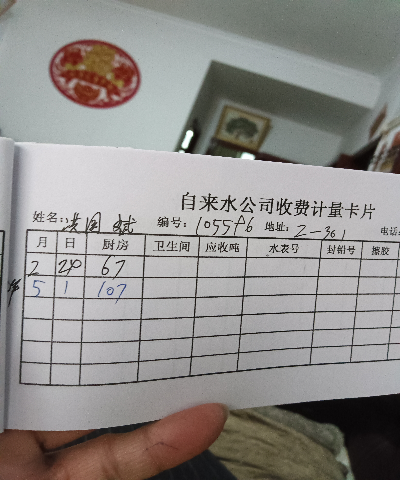 自来水公司收费计量卡片
姓名: 洪国斌 编号: 105596 地址: 2-301 电话
月 日 厨房 卫生间 应收吨 水表号 封铅号 擦胶
2 20 67
5 1 107